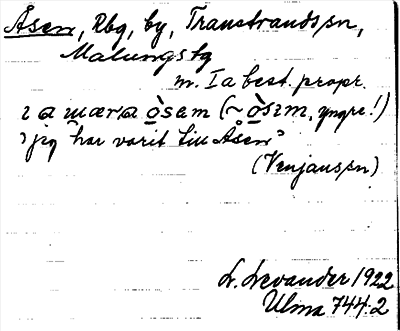 Åsen, Rbg, by, Transtrands sn,
Malungs tg
m. Ia best. propr.
ɿ a wæra òsam (~ òsɪm, yngre!)
"jag har varit till Åsen"
(Venjans sn)
L. Levander 1922
Ulma 744:2